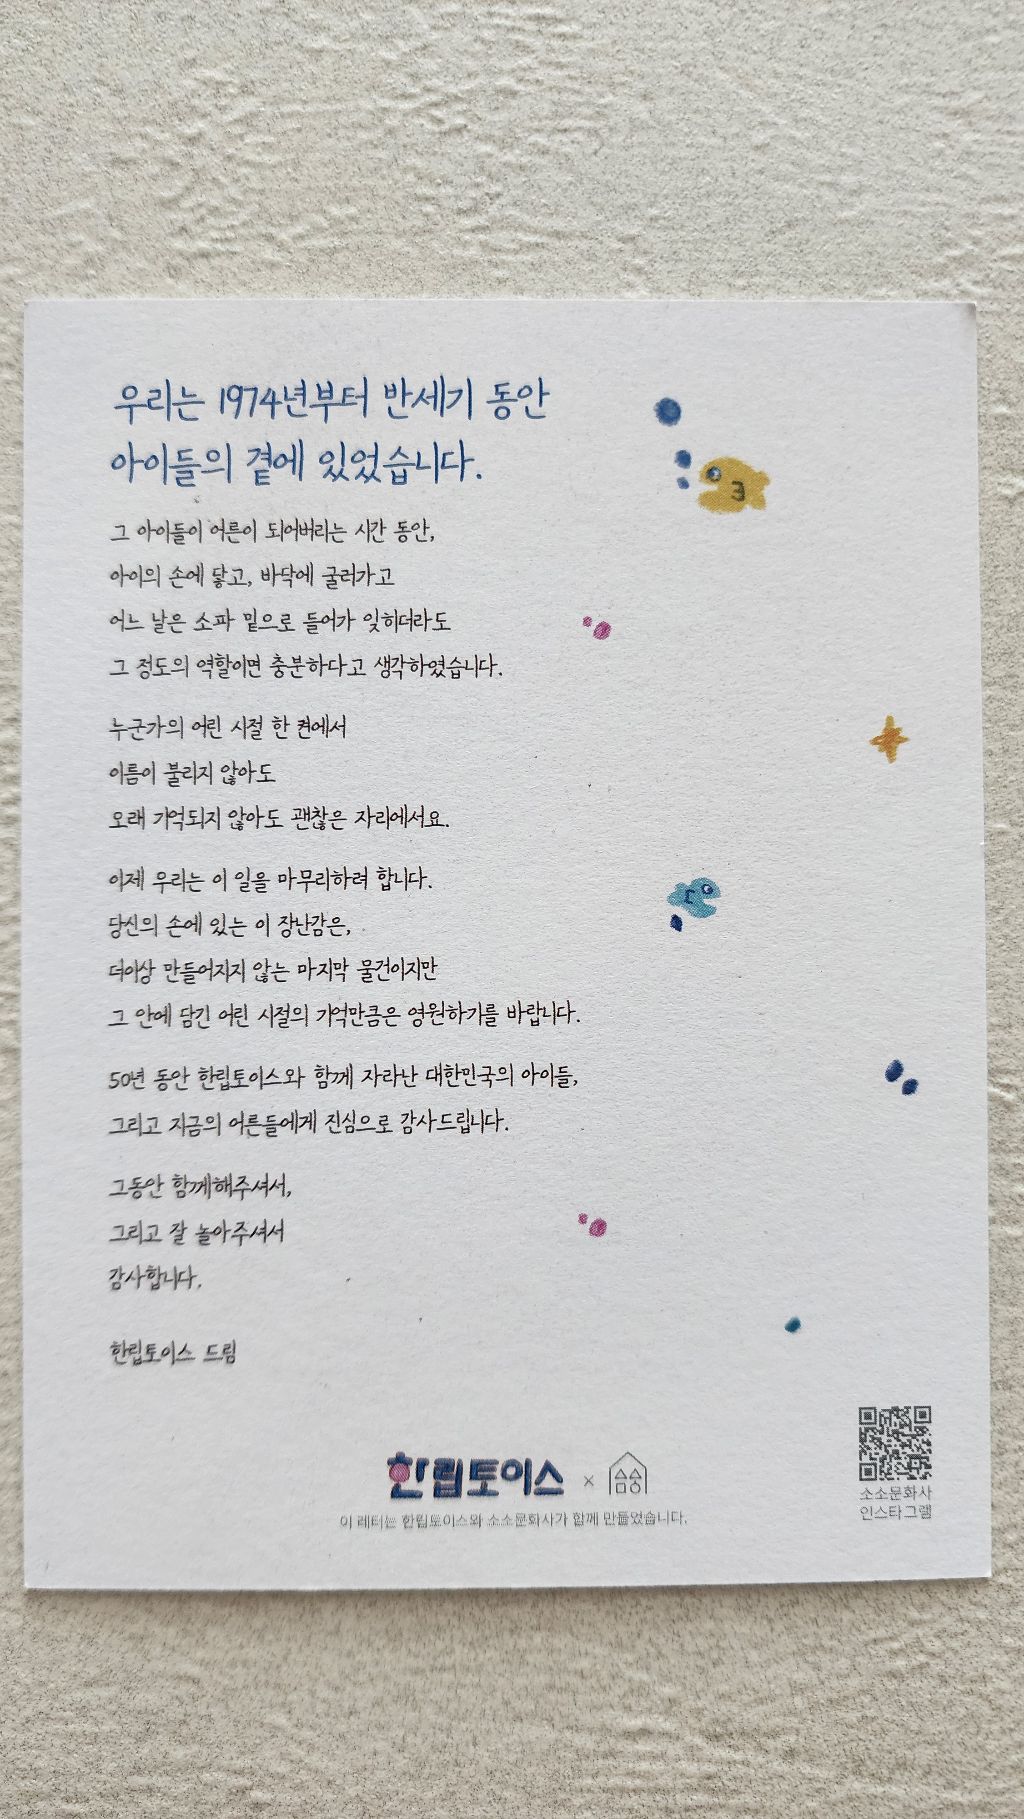 우리는 1974년부터 반세기 동안
아이들의 곁에 있었습니다.
그 아이들이 어른이 되어버리는 시간 동안,
아이의 손에 닿고, 바닥에 굴러가고
어느 날은 소파 밑으로 들어가 잊히더라도
그 정도의 역할이면 충분하다고 생각하였습니다.
누군가의 어린 시절 한 켠에서
이름이 불리지 않아도
오래 기억되지 않아도 괜찮은 자리에서요.
이제 우리는 이 일을 마무리하려 합니다.
당신의 손에 있는 이 장난감은,
더이상 만들어지지 않는 마지막 물건이지만
그 안에 담긴 어린 시절의 기억만큼은 영원하기를 바랍니다.
50년 동안 한립토이스와 함께 자라난 대한민국의 아이들,
그리고 지금의 어른들에게 진심으로 감사드립니다.
그동안 함께해주셔서,
그리고 잘 놀아주셔서
감사합니다.
한립토이스 드림
한립토이스 × 소소문화사
이 레터는 한립토이스와 소소문화사가 함께 만들었습니다.
소소문화사
인스타그램
3